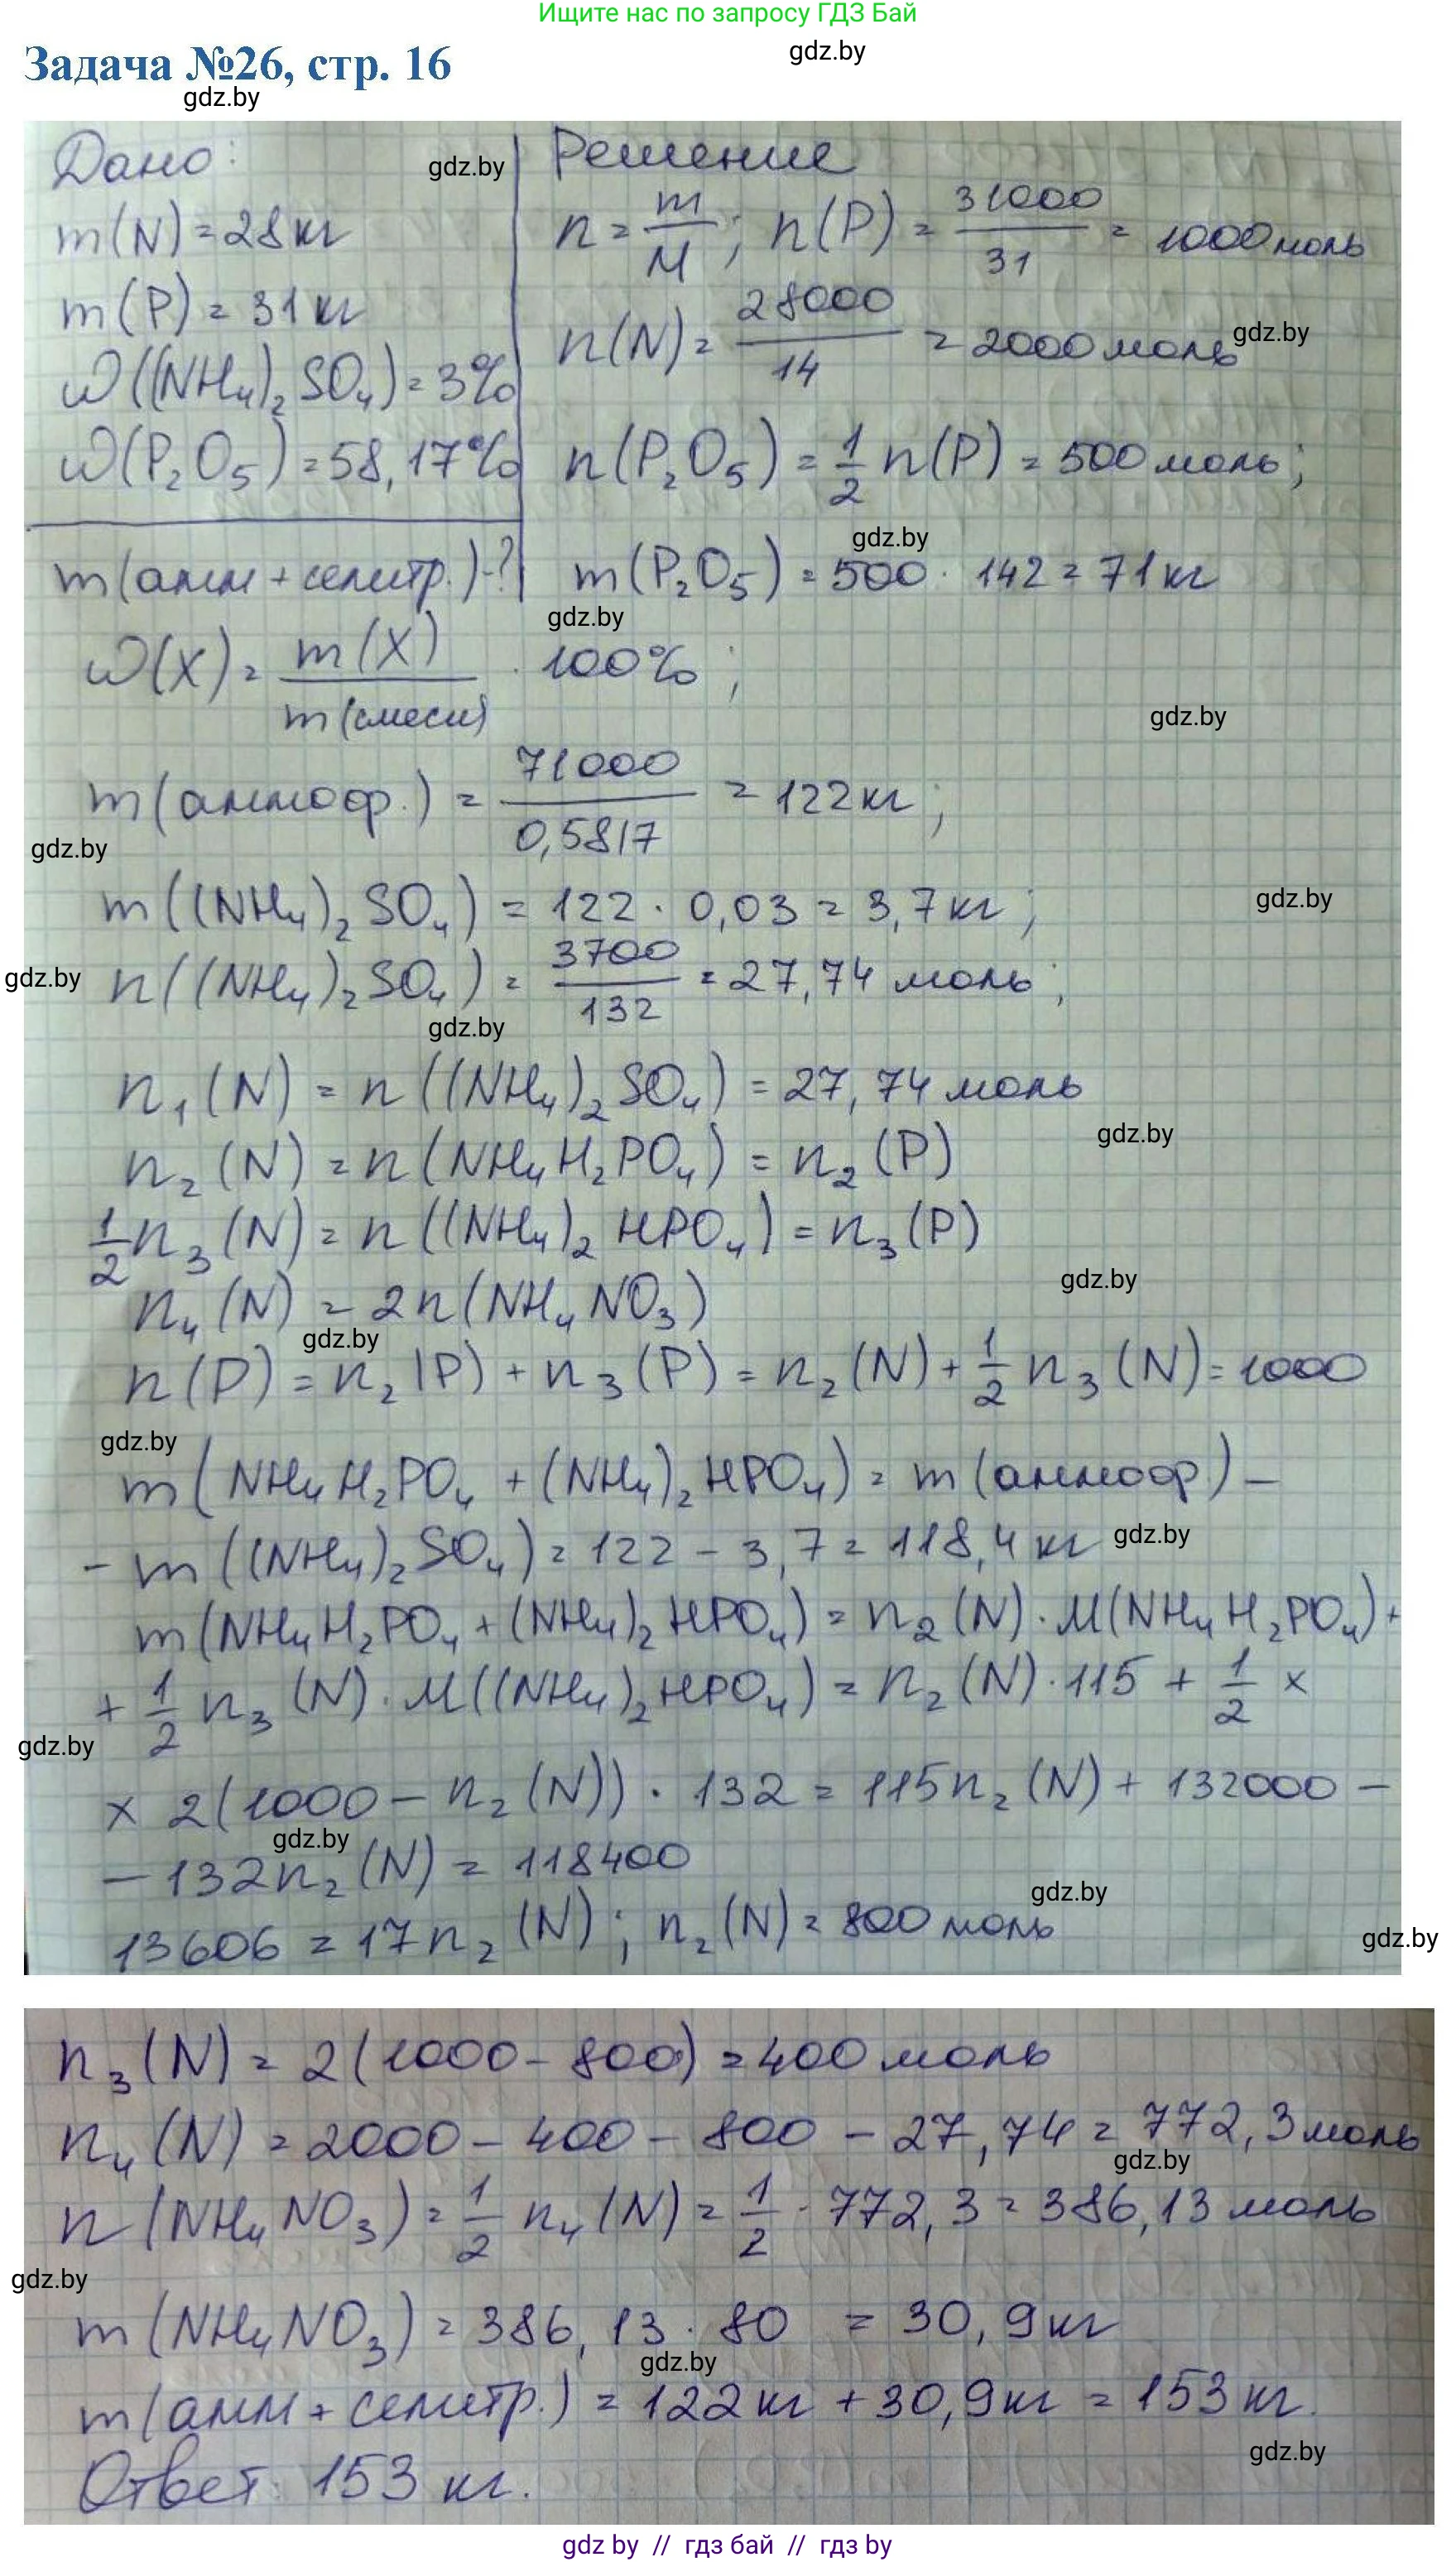 Ищите нас по запросу ГДЗ Бай
gdz.by
Задача №26, стр. 16
gdz.by
Дано:
gdz.by
m(N) = 28 кг
m(P) = 31 кг
ω((NH₄)₂SO₄) = 3%
ω(P₂O₅) = 58,17%
m(амм + селитр.) - ?
Решение
n = m/M; n(P) = 31000/31 = 1000 моль
n(N) = 28000/14 = 2000 моль
gdz.by
n(P₂O₅) = 1/2 n(P) = 500 моль;
gdz.by
m(P₂O₅) = 500 · 142 = 71 кг
gdz.by
ω(X) = m(X)/m(смеси) · 100%;
gdz.by
m(аммоф.) = 71000/0,5817 = 122 кг;
gdz.by
m((NH₄)₂SO₄) = 122 · 0,03 = 3,7 кг;
gdz.by
n((NH₄)₂SO₄) = 3700/132 = 27,74 моль;
gdz.by
gdz.by
n₁(N) = n((NH₄)₂SO₄) = 27,74 моль
gdz.by
n₂(N) = n(NH₄H₂PO₄) = n₂(P)
1/2 n₃(N) = n((NH₄)₂HPO₄) = n₃(P)
gdz.by
n₄(N) = 2n(NH₄NO₃)
gdz.by
n(P) = n₂(P) + n₃(P) = n₂(N) + 1/2 n₃(N) = 1000
gdz.by
m(NH₄H₂PO₄ + (NH₄)₂HPO₄) = m(аммоф) –
– m((NH₄)₂SO₄) = 122 – 3,7 = 118,4 кг
gdz.by
m(NH₄H₂PO₄ + (NH₄)₂HPO₄) = n₂(N) · M(NH₄H₂PO₄) +
+ 1/2 n₃(N) · M((NH₄)₂HPO₄) = n₂(N) · 115 + 1/2 ×
gdz.by
× 2(1000 – n₂(N)) · 132 = 115n₂(N) + 132000 –
gdz.by
– 132n₂(N) = 118400
gdz.by
13606 = 17n₂(N); n₂(N) = 800 моль
gdz.by
n₃(N) = 2(1000 – 800) = 400 моль
n₄(N) = 2000 – 400 – 800 – 27,74 = 772,3 моль
gdz.by
n(NH₄NO₃) = 1/2 n₄(N) = 1/2 · 772,3 = 386,13 моль
gdz.by
m(NH₄NO₃) = 386,13 · 80 = 30,9 кг
gdz.by
m(амм + селитр.) = 122 кг + 30,9 кг = 153 кг.
gdz.by
Ответ: 153 кг.
gdz by // гдз бай // гдз by